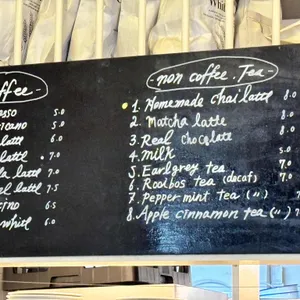 ffee -
esso 5.0
icano 5.0
latte 6.0
latte 7.0
la latte 7.0
el latte 7.5
cino 6.5
white 6.0
- non coffee . Tea -
1. Homemade chai latte 8.0
2. Matcha latte 8.0
3. Real chocolate 8.0
4. Milk 5.0
5. Earlgrey tea 7.0
6. Rooibos tea (decaf) 7.0
7. Peppermint tea (〃) 7.
8. Apple cinnamon tea (〃) 7